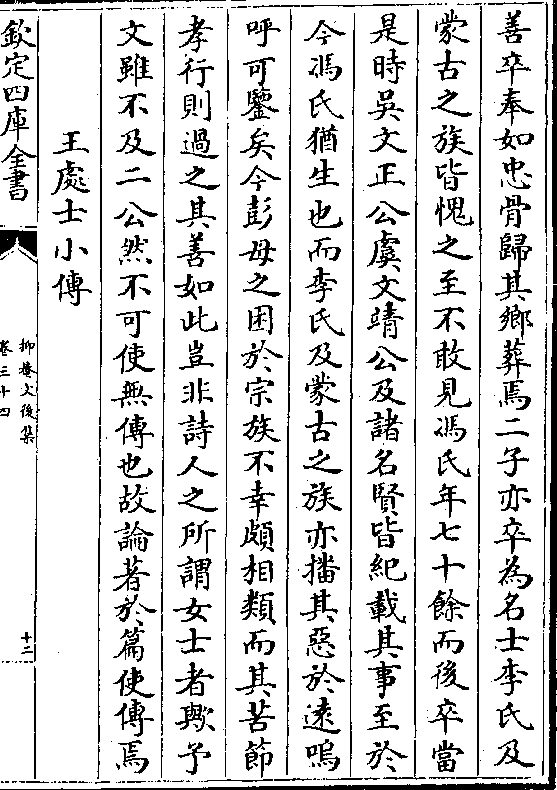 善卒奉如忠骨歸其鄉葬焉二子亦卒為名士李氏及
蒙古之族皆愧之至不敢見馮氏年七十餘而後卒當
是時吳文正公虞文靖公及諸名賢皆紀載其事至於
今馮氏猶生也而李氏及蒙古之族亦播其惡於遠嗚
呼可鑒矣今彭母之困於宗族不幸頗相類而其苦節
孝行則過之其善如此豈非詩人之所謂女士者歟予
文雖不及二公然不可使無傳也故論著於篇使傳焉
王處士小傳
欽定四庫全書
抑菴文後集
卷三十四
十二